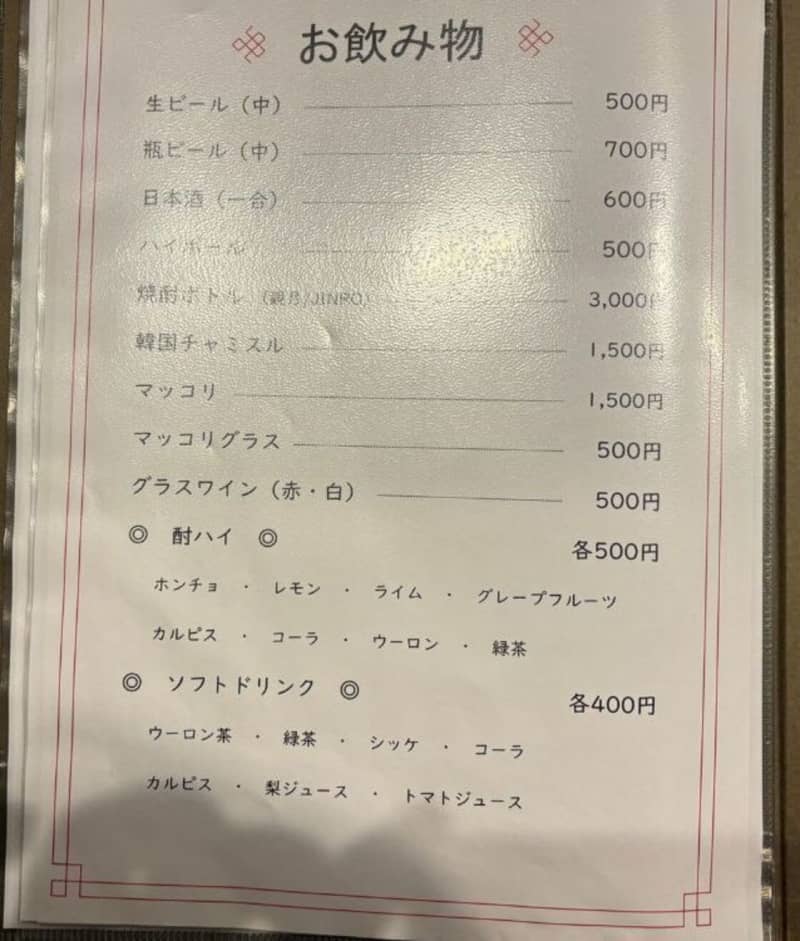 お飲み物
生ビール（中） 500円
瓶ビール（中） 700円
日本酒（一合） 600円
ハイボール 500円
焼酎ボトル （鏡月/JINRO） 3,000円
韓国チャミスル 1,500円
マッコリ 1,500円
マッコリグラス 500円
グラスワイン（赤・白） 500円
◎ 酎ハイ ◎ 各500円
ホンチョ ・ レモン ・ ライム ・ グレープフルーツ
カルピス ・ コーラ ・ ウーロン ・ 緑茶
◎ ソフトドリンク ◎ 各400円
ウーロン茶 ・ 緑茶 ・ シッケ ・ コーラ
カルピス ・ 梨ジュース ・ トマトジュース